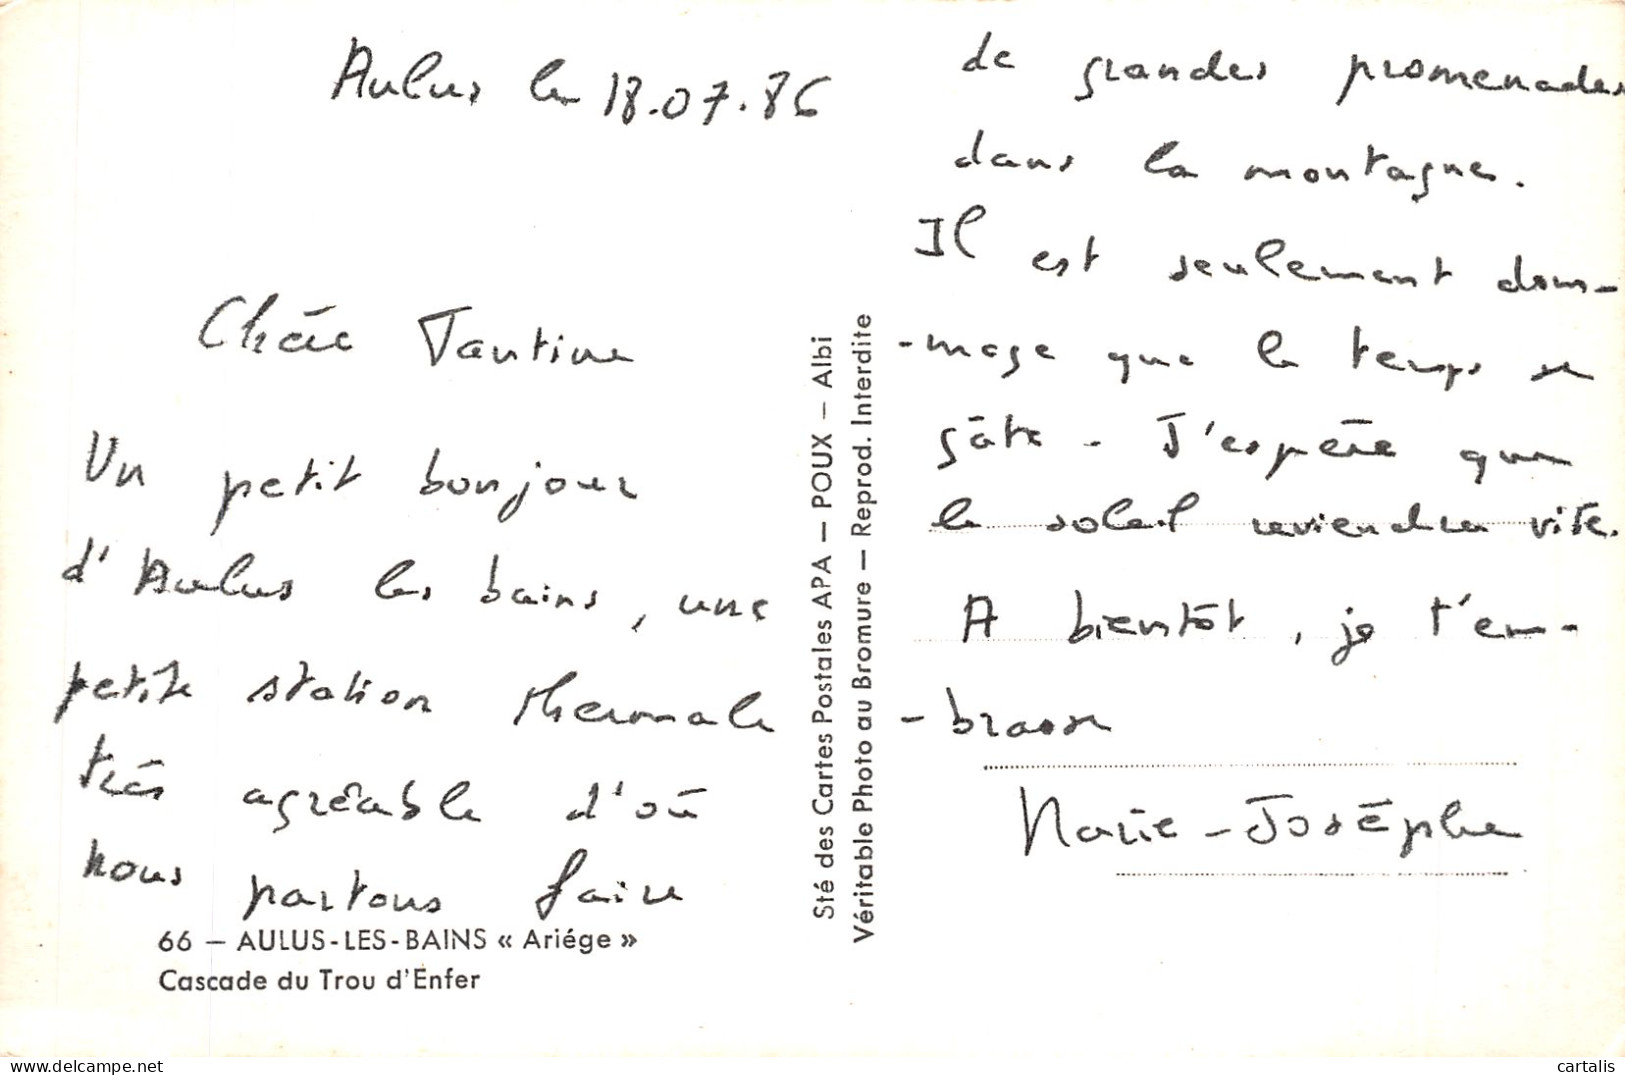 Aulus le 18.07.86
Chère Tantine
Un petit bonjour
d'Aulus les bains, une
petite station thermale
très agréable d'où
nous partons faire
66 – AULUS-LES-BAINS « Ariége »
Cascade du Trou d'Enfer
Sté des Cartes Postales APA – POUX – Albi
Véritable Photo au Bromure – Reprod. Interdite
de grandes promenades
dans la montagne.
Il est seulement dom-
-mage que le temps se
gâte - J'espère que
le soleil reviendra vite.
A bientôt, je t'em-
-brasse
Marie-Josèphe
cartalis